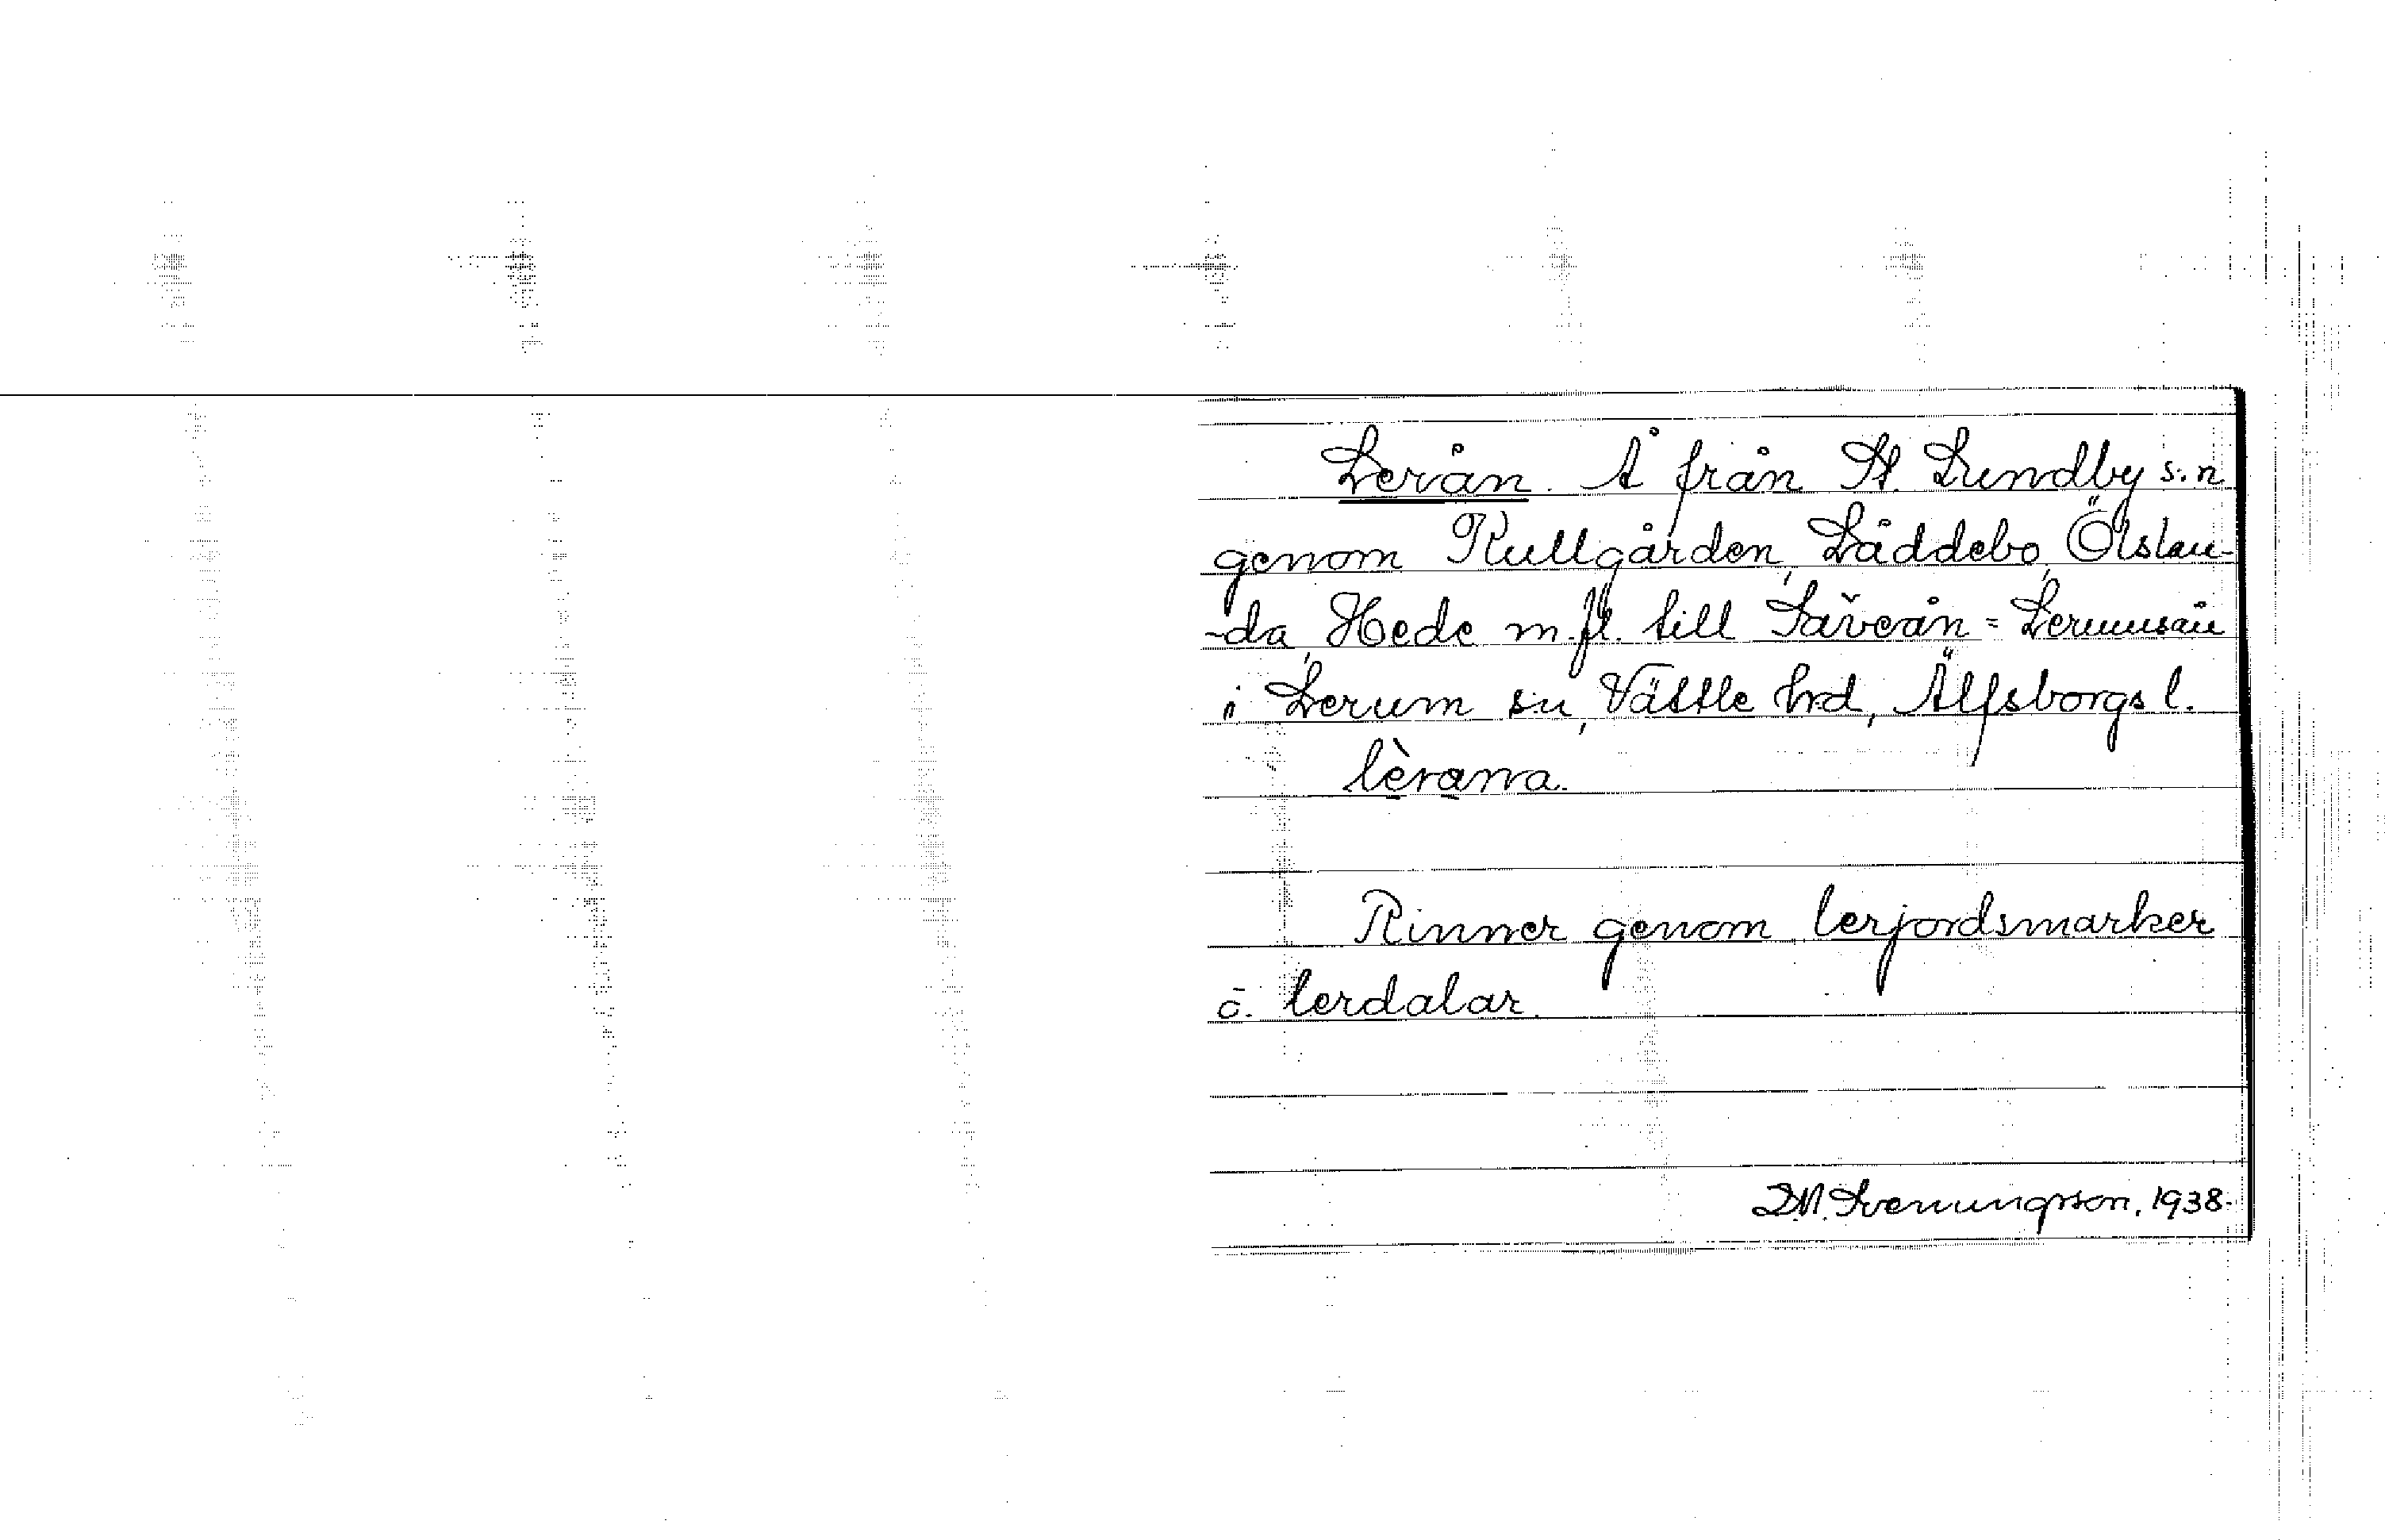 Lerån. Å från St. Lundby s:n
genom Kullgården, Läddebo, Ölslan-
-da, Hede m.fl. till Säveån = Lerumsån
i Lerum sn, Vättle hrd, Älfsborgs l.
lèranna.
Rinner genom lerjordsmarker
o. lerdalar.
D.M. Svenungsson, 1938.